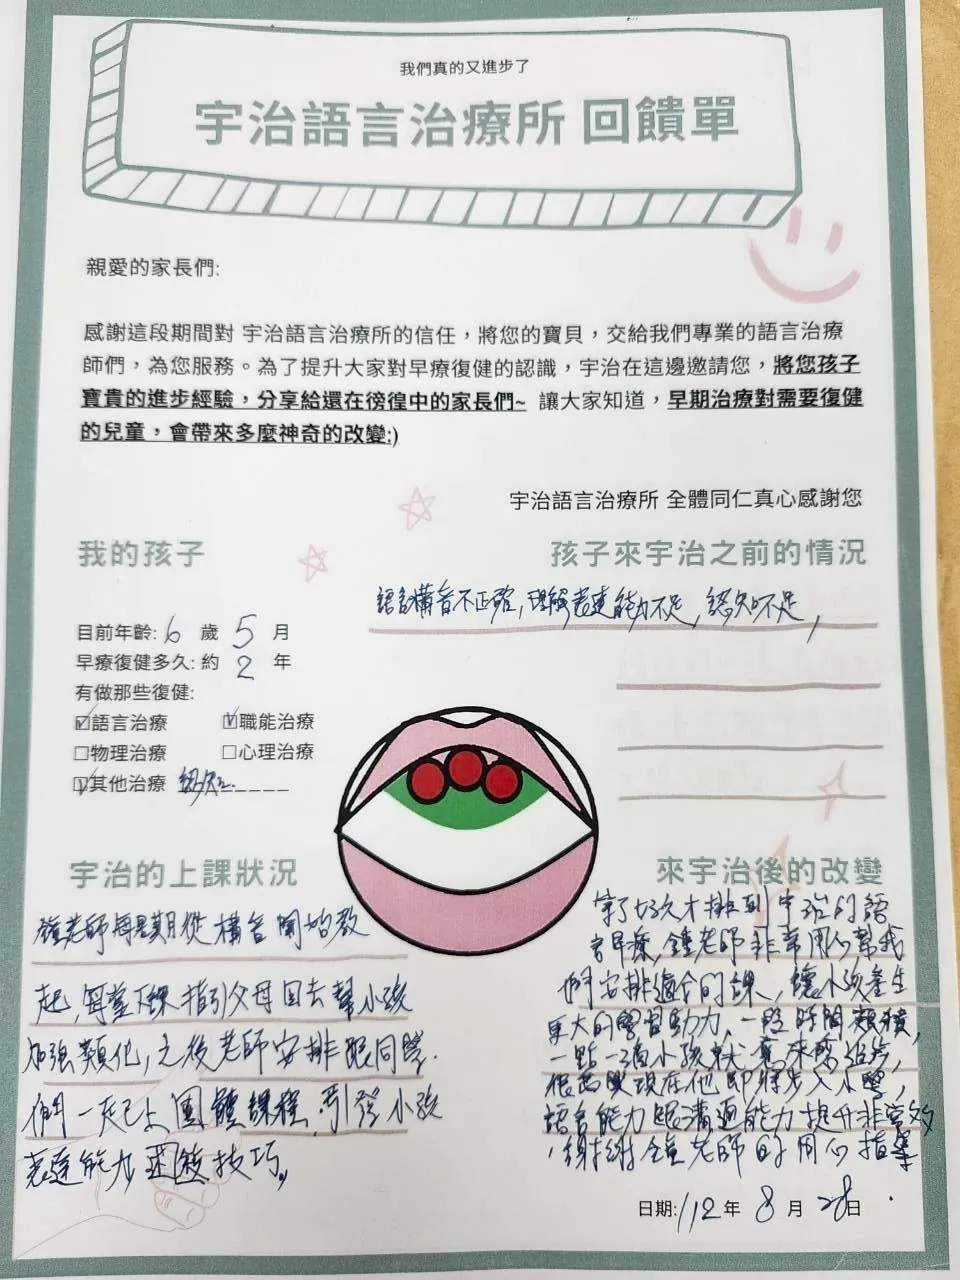 我們真的又進步了
宇治語言治療所 回饋單
親愛的家長們:
感謝這段期間對 宇治語言治療所的信任，將您的寶貝，交給我們專業的語言治療
師們，為您服務。為了提升大家對早療復健的認識，宇治在這邊邀請您，將您孩子
寶貴的進步經驗，分享給還在徬徨中的家長們~ 讓大家知道，早期治療對需要復健
的兒童，會帶來多麼神奇的改變:)
宇治語言治療所 全體同仁真心感謝您
我的孩子
目前年齡: 6 歲 5 月
早療復健多久: 約 2 年
有做那些復健:
☑語言治療 ☑職能治療
□物理治療 □心理治療
☑其他治療 認知
孩子來宇治之前的情況
語言構音不正確, 理解表達能力不足, 認知不足,
宇治的上課狀況
鍾老師每星期從構音開始教
起, 每堂下課指引父母回去幫小孩
加強類化, 之後老師安排跟同學
們一起上團體課程, 引發小孩
表達能力 技巧。
來宇治後的改變
等了好久才排到宇治的語
言早療, 鍾老師非常用心幫我
們安排適合的課, 讓小孩產生
更大的學習動力、一段時間累積,
一點一滴小孩就 進步,
很高興現在他即將步入小學,
語言能力跟溝通能力提升非常
, 謝謝鍾老師的用心指導
日期: 112年 8 月 28日